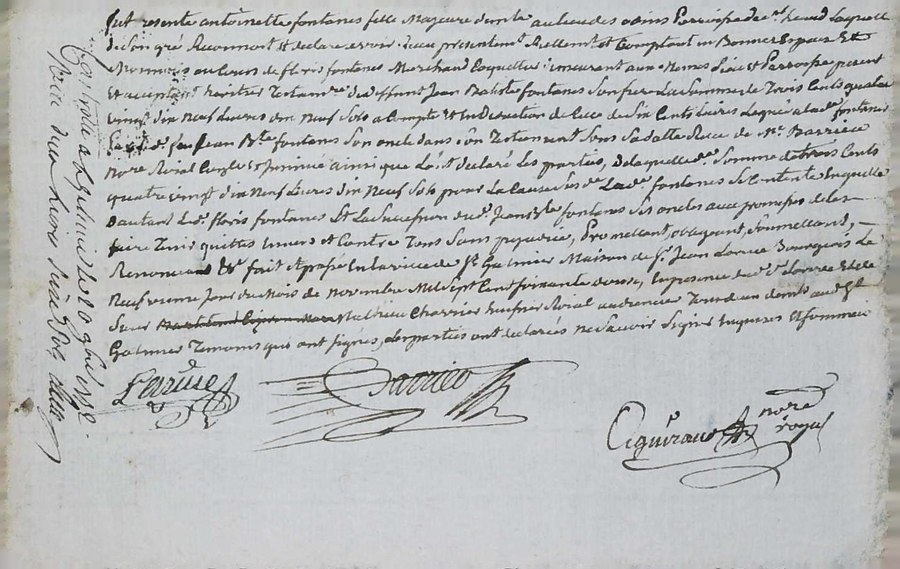 fut presente antoinette fontanes fille Majeure dem.te au lieu des oains Parroisse de laquelle
de son gré Reconnoit et declare avoir Receu presentem.t Reellem.t et Comptant en Bonnes Especes Et
Monnoie au Cours de floris fontanes Marchand Coquetier Demeurant aux Parroisse present
Et acceptant heritier Testam.re de deffunt Jean Batiste fontanes son frere La Somme de Trois Cents quatre
vingt dix Neuf Livres dix Neuf Sols a Compte Et en Deduction de Celle de Six Cents Livres Leguée a lad.e fontanes
par led. feu Jean B.te fontanes son oncle dans son Testament Sous Sa datte Receu de M.e Barrieu
No.re Roial ainsi que L'ont declaré Les parties, de laquelle d.e Somme de trois Cents
quatre vingt dix Neuf Livres dix Neuf Sols pour La Cause Susd.e Lad.e fontanes Se Contente En quitte
d'autant Led. floris fontanes Et La Succession dud. Jean B.te fontanes Ses oncles avec promesse de les
faire Tenir quittes Envers et Contre Tous Sans prejudice, Promettant, obligeant, Soumettant,
Renonceant &c fait Et passé En la ville de S.t Galmier Maison de S.r Jean Bourgeois Le
Neuvieme Jour du Mois de Novembre Mil Sept Cent Cinquante douze, En presence dud. S.r Et de
Sieur Mathieu Charrier huissier Roial audiencier Tous deux dem.ts aud. S.t
Galmier Temoins qui ont signes, Les parties ont declarées ne Savoir Signer Enquises Et Sommées
Barrieu
Eiguiraud no.re
royal
Controlé a S.t Galmier le 20 9bre 1752.
Reçu deux Livres huit sols